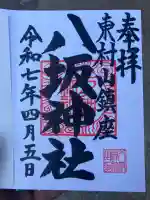 奉拝
東村山鎮座
八坂神社
令和七年四月五日